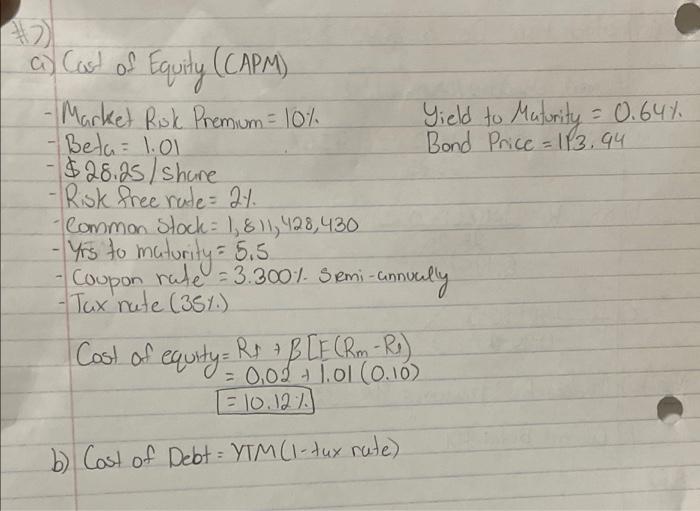 #7)
a) Cost of Equity (CAPM)
- Market Risk Premium = 10% Yield to Maturity = 0.64%
- Beta = 1.01 Bond Price = 113.94
- $28.25/share
- Risk free rate = 2%
- Common Stock = 1,811,428,430
- Yrs to maturity = 5.5
- Coupon rate = 3.300% Semi-annually
- Tax rate (35%)
Cost of equity = Rf + β[E(Rm-Rf)
= 0.02 + 1.01 (0.10)
= 10.12%
b) Cost of Debt = YTM(1-tax rate)